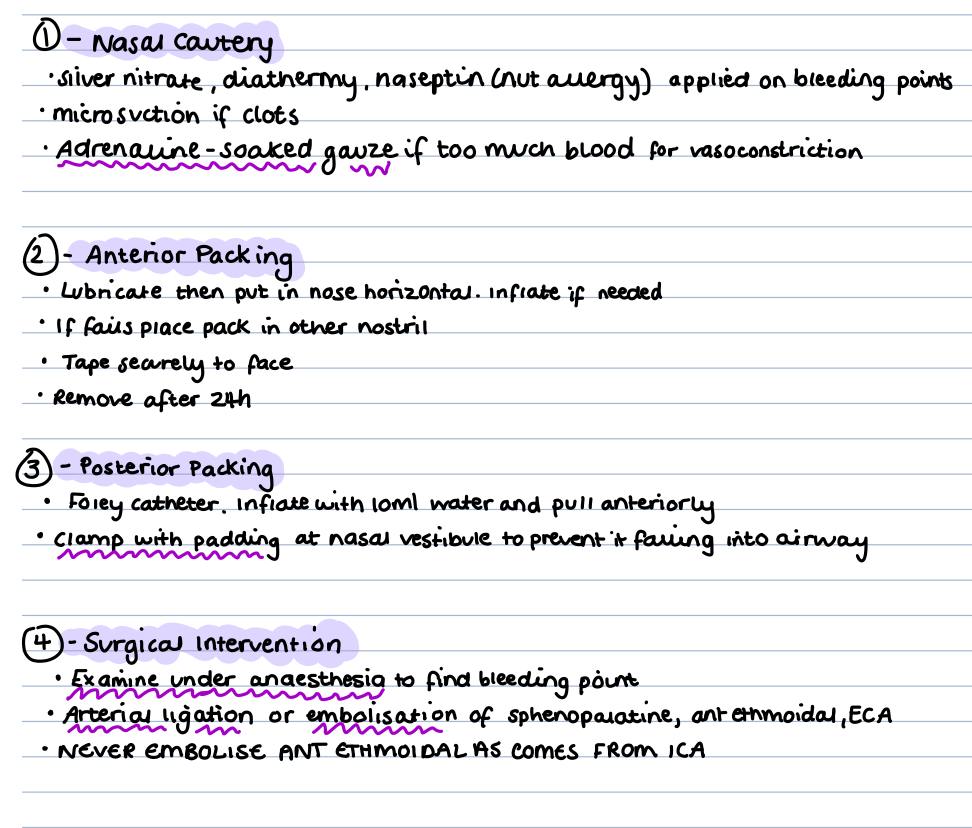 ① - Nasal Cautery
· Silver nitrate, diathermy, naseptin (nut allergy) applied on bleeding points
· microsuction if clots
· Adrenaline-soaked gauze if too much blood for vasoconstriction
② - Anterior Packing
· Lubricate then put in nose horizontal. Inflate if needed
· If fails place pack in other nostril
· Tape securely to face
· Remove after 24h
③ - Posterior Packing
· Foley catheter. Inflate with 10ml water and pull anteriorly
· Clamp with padding at nasal vestibule to prevent it falling into airway
④ - Surgical Intervention
· Examine under anaesthesia to find bleeding point
· Arterial ligation or embolisation of sphenopalatine, ant ethmoidal, ECA
· NEVER EMBOLISE ANT ETHMOIDAL AS COMES FROM ICA